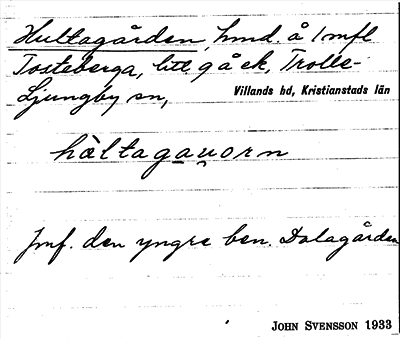 Hultagården, hmd. å 1 mfl
Tosteberga, litt. g å ek, Trolle-
Ljungby sn, Villands hd, Kristianstads län
hæ̀ltagau̯orn
Jmf. den yngre ben. Dalagården
JOHN SVENSSON 1933